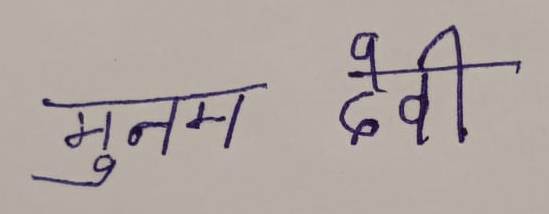 मुनम देवी